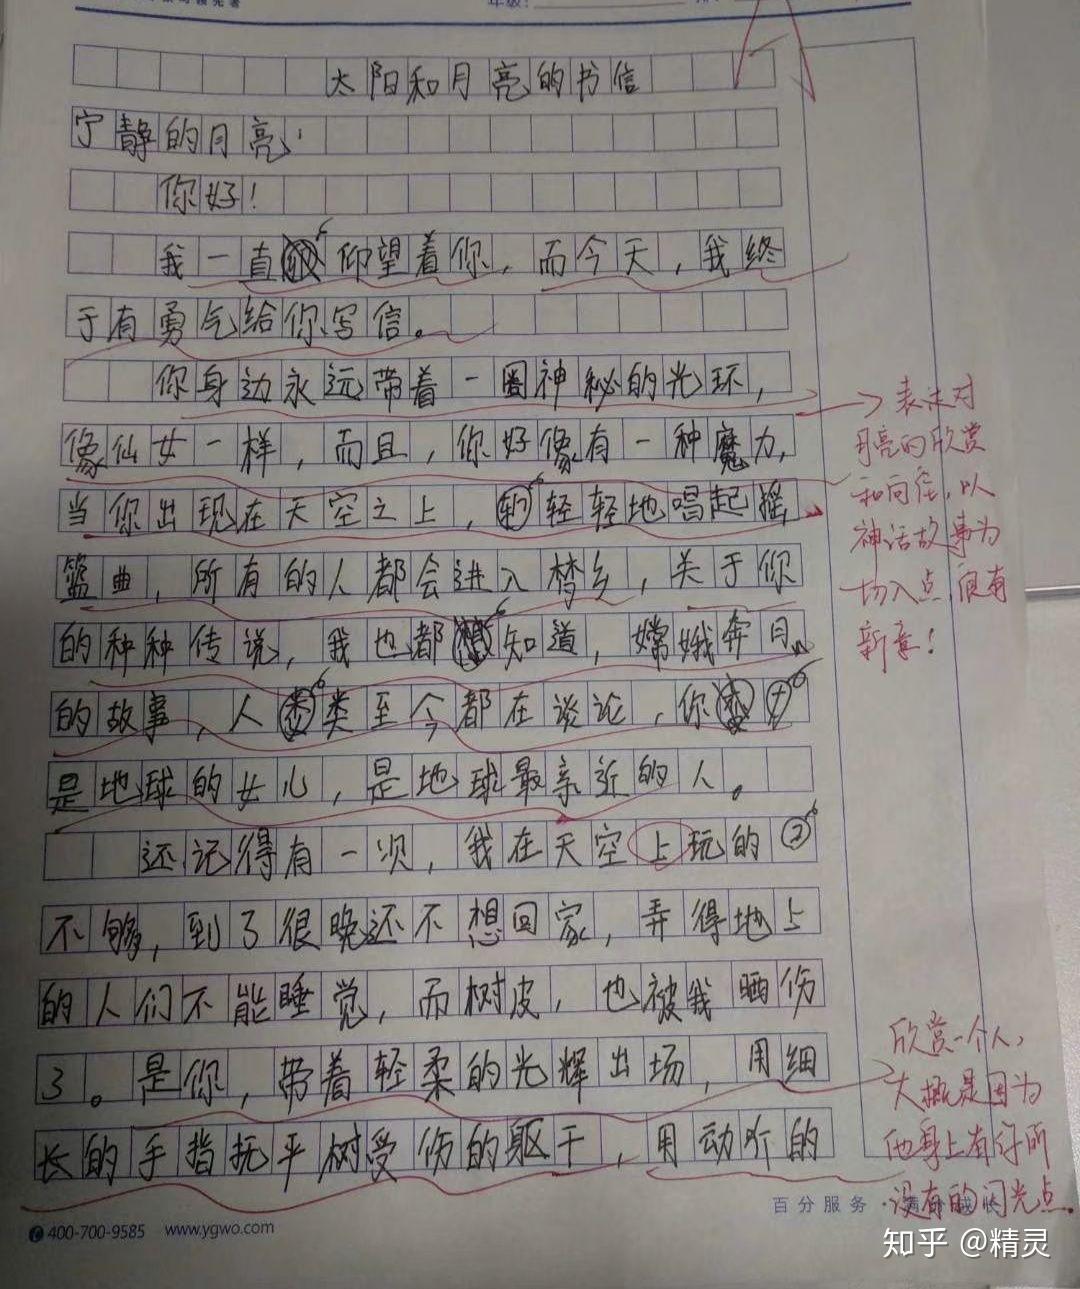 年级:
太阳和月亮的书信
宁静的月亮:
你好!
我一直仰望着你,而今天,我终
于有勇气给你写信。
你身边永远带着一圈神秘的光环,
像仙女一样,而且,你好像有一种魔力,
当你出现在天空之上,轻轻地唱起摇
篮曲,所有的人都会进入梦乡,关于你
的种种传说,我也都知道,嫦娥奔月
的故事,人类至今都在谈论,你
是地球的女儿,是地球最亲近的人。
还记得有一次,我在天空上玩的
不够,到了很晚还不想回家,弄得地上
的人们不能睡觉,而树皮,也被我晒伤
了。是你,带着轻柔的光辉出场,用细
长的手指抚平树受伤的躯干,用动听的
表达对
月亮的欣赏
和向往,以
神话故事为
切入点,很有
新意!
欣赏一个人,
大概是因为
他身上有你所
没有的闪光点.
百分服务
400-700-9585 www.ygwo.com
知乎 @精灵